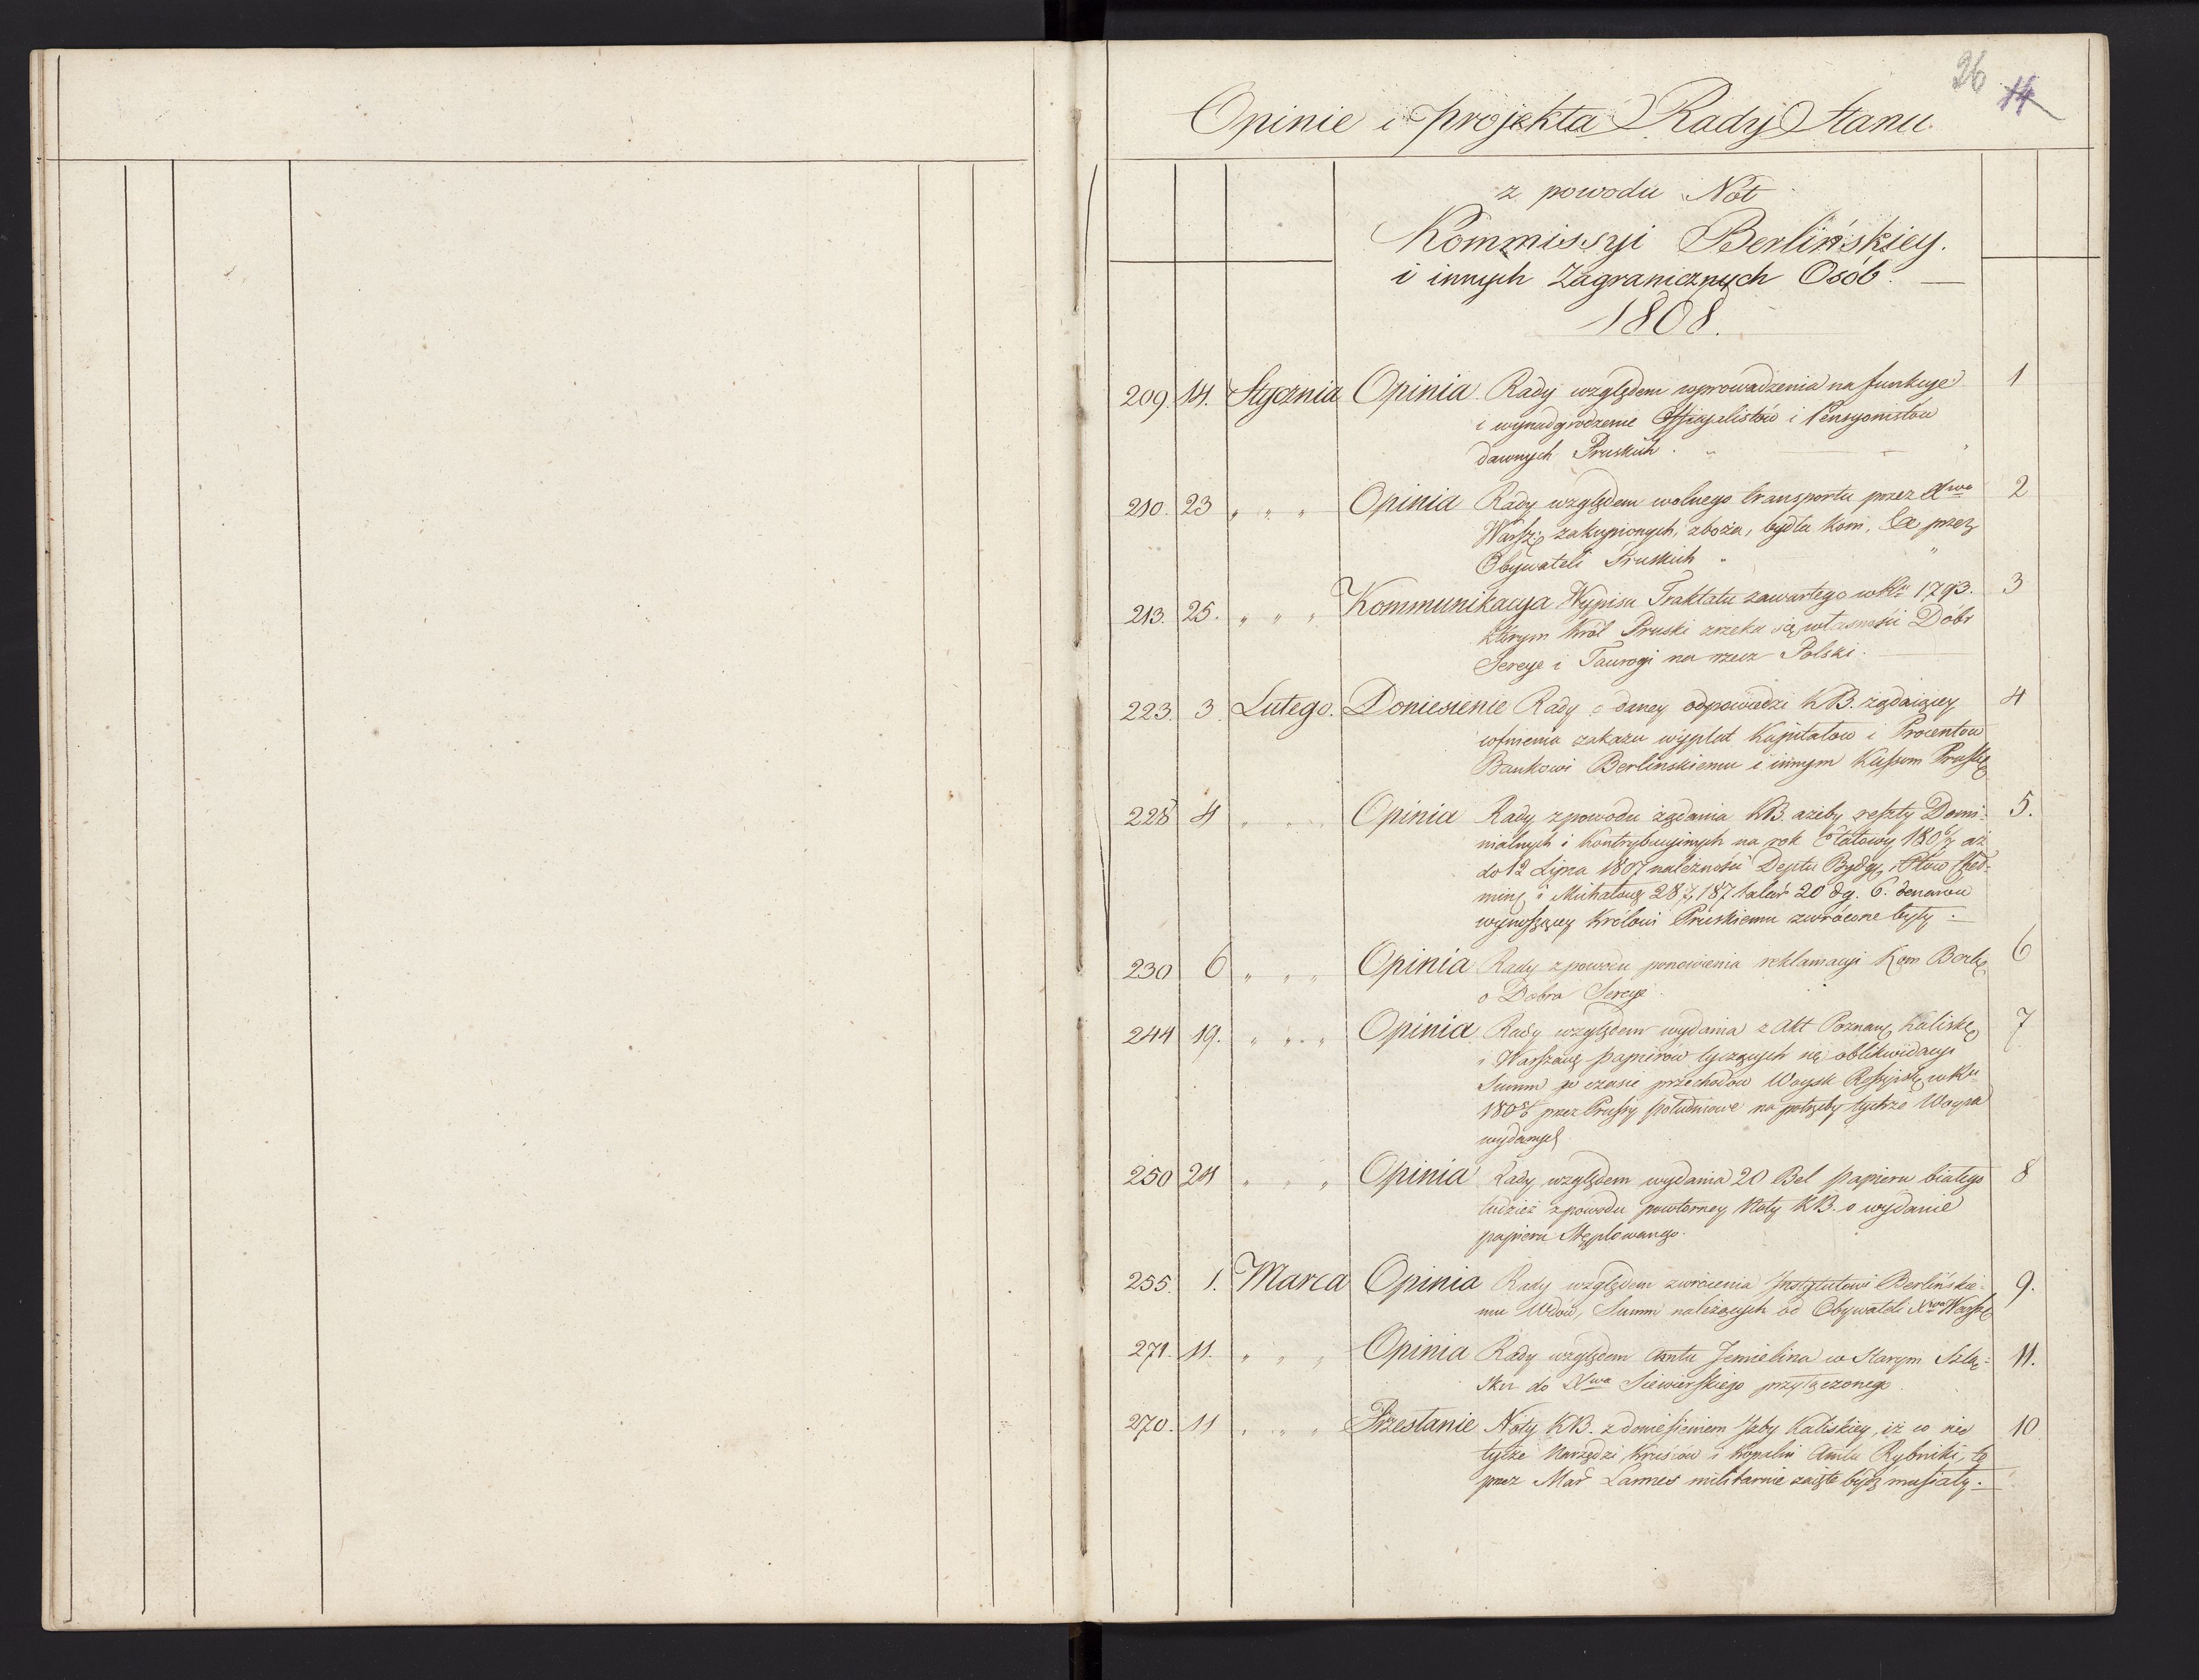 26 14
Opinie i projekta Rady Stanu.
z powodu Not
Kommissyi Berlińskiey.
i innych Zagranicznych Osób. —
1808.
209. 14. Stycznia Opinia Rady względem wprowadzenia na funkcye 1
i wynadgrodzenie Officyalistów i Pensyonistów
dawnych Pruskich.
210. 23 " " " Opinia Rady względem wolnego transportu przez Xwo 2
Warsz. zakupionych, zboża, bydła koni, &c przez
Obywateli Pruskich "
213. 25. " " " Kommunikacya Wypisu Traktatu zawartego w Ru 1793. 3
którym Król Pruski zrzeka się własności Dóbr
Sereye i Taurogi na rzecz Polski.
223. 3. Lutego. Doniesienie Rady o daney odpowiedzi KB. żądaiącey 4
cofnienia zakazu wypłat Kapitałow i Procentow
Bankowi Berlinskiemu i innym Kassom Prusk
228 4 " " " Opinia Rady z powodu żądania KB. ażeby reszty Domi- 5.
nialnych i Kontrybucyinych na rok Etatowy 1806/7 aż
do 12 Lipca 1807 należności Deptu Bydg,
i Michałow 187 talar 20 dg. 6. denarow
wynoszącey Królowi Pruskiemu zwrócone były.
230 6 " " " Opinia Rady z powodu ponowienia reklamacyi Kom Berl 6
o Dobra Sereye
244 19. " " " Opinia Rady względem wydania z Akt Poznan, Kalisk 7
i Warszaw papierów tyczących się oblikwidacyi
Summ w czasie przechodow Woysk Rossyisk w Ru
180 przez Prussy południowe na potrzeby tychże Woysk
wydanych
250 24 " " " Opinia Rady względem wydania 20 Bel papieru białego 8
tudzież z powodu powtorney Noty KB. o wydanie
papieru Stęplowanego.
255. 1. Marca Opinia Rady względem zwrócenia Instytutowi Berlińskie- 9.
mu Wdów, Summ należących od Obywateli Xwa Warsz
271. 11. " " " Opinia Rady względem Amtu Jemielina w Starym Szlą- 11.
sku do Xwa Siewierskiego przyłączonego
270. 11 " " " Przesłanie Noty KB. z doniesieniem Izby Kaliskiey, iż co do
tyże Narzędzi Kruścow i Kopalni Amtu Rybniki, te 10
przez Mar Lannes militarnie zaięte bydź musiały.